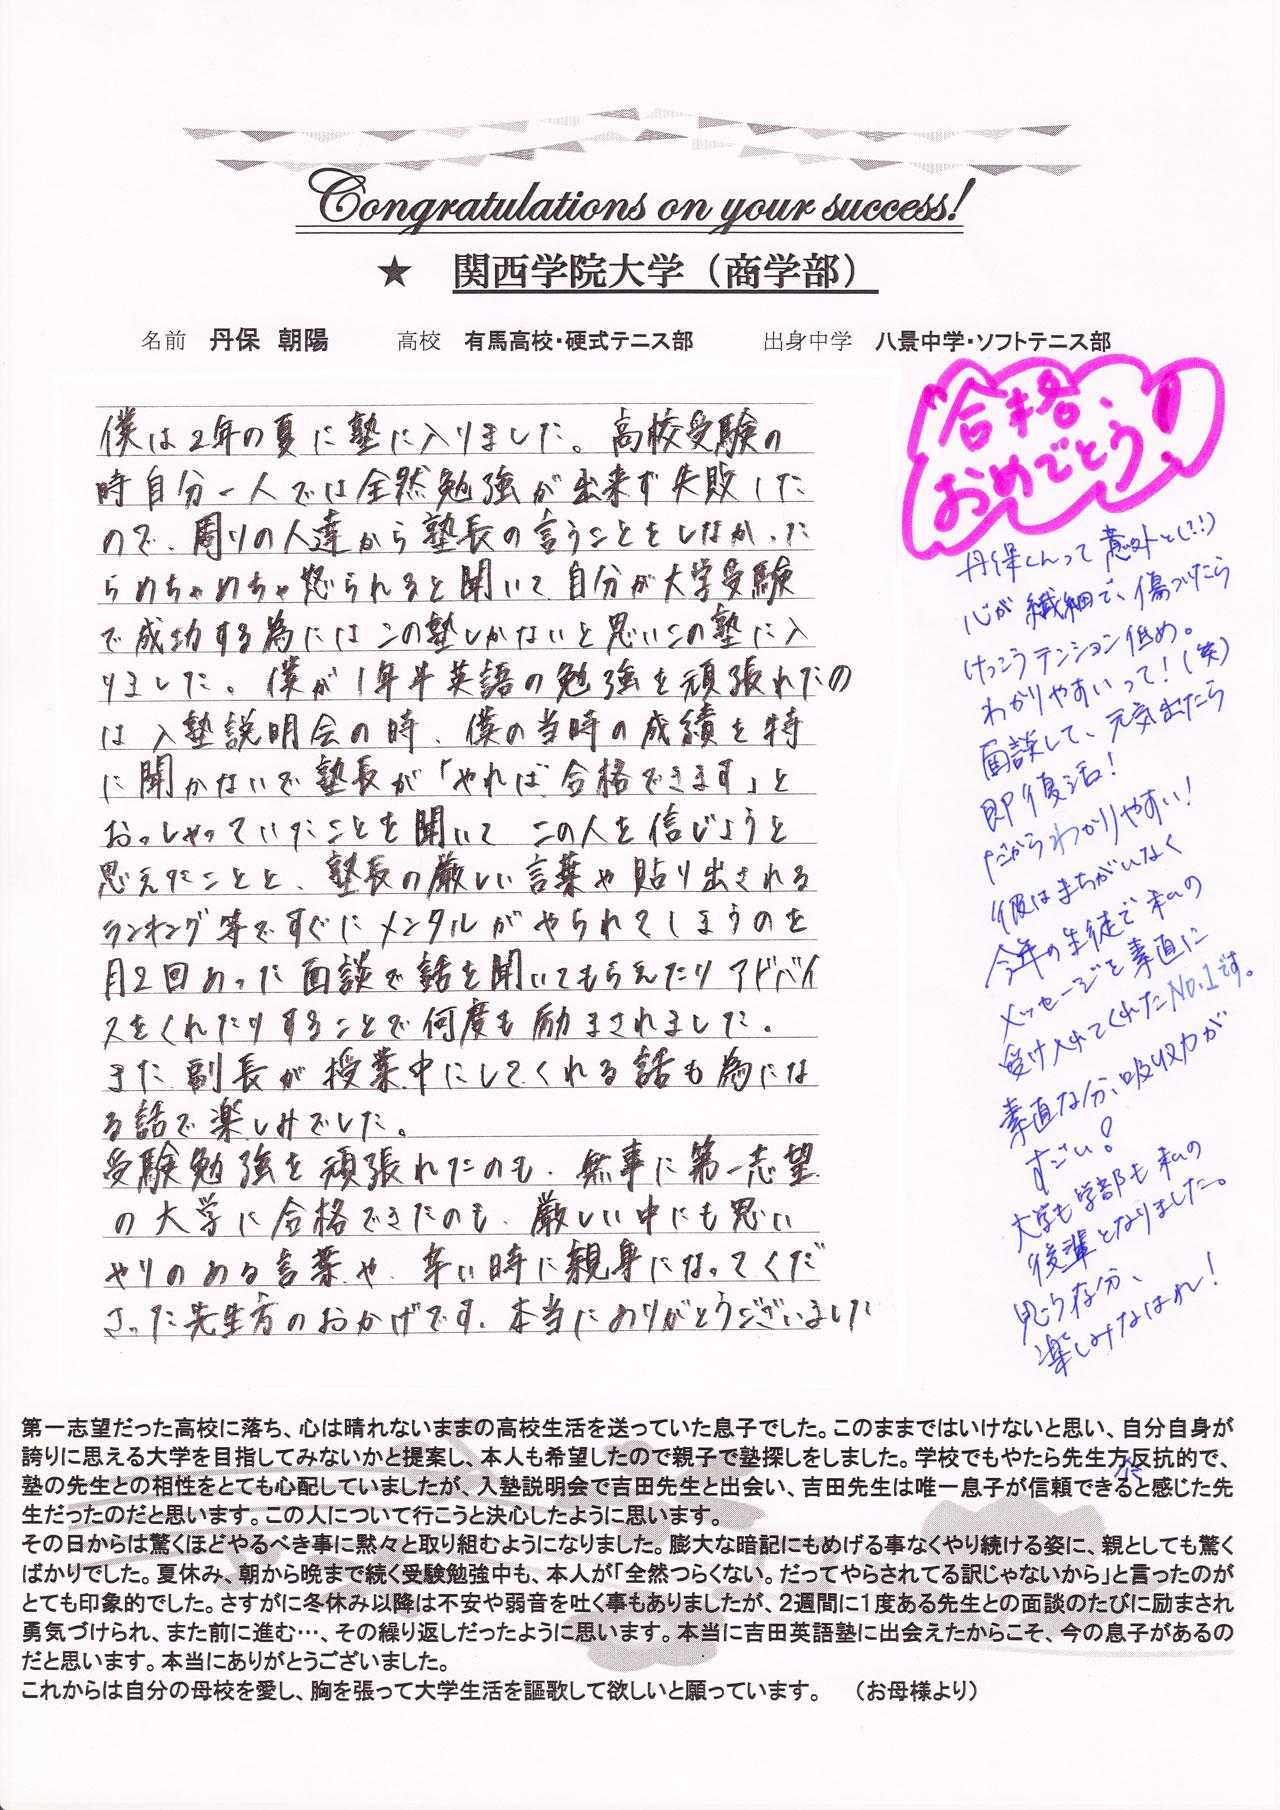 Congratulations on your success!
★ 関西学院大学（商学部）
名前 丹保 朝陽 高校 有馬高校・硬式テニス部 出身中学 八景中学・ソフトテニス部
僕は2年の夏に塾に入りました。高校受験の
時自分一人では全然勉強が出来ず失敗した
ので、周りの人達から塾長の言うことをしなかった
らめちゃめちゃ怒られると聞いて、自分が大学受験
で成功する為にはこの塾しかないと思いこの塾に入
りました。僕が1年半英語の勉強を頑張れたの
は入塾説明会の時、僕の当時の成績を特
に聞かないで塾長が「やれば合格できます」と
おっしゃっていたことを聞いて この人を信じようと
思えたことと、塾長の厳しい言葉や貼り出される
ランキング等ですぐにメンタルがやられてしまうのを
月2回あった面談で話を聞いてもらえたりアドバイ
スをくれたりすることで何度も励まされました。
また副長が授業中にしてくれる話も為にな
る話で楽しみでした。
受験勉強を頑張れたのも、無事に第一志望
の大学に合格できたのも、厳しい中にも思い
やりのある言葉や、辛い時に親身になってくだ
さった先生方のおかげです。本当にありがとうございました
合格、
おめでとう!
丹保くんって意外と(?!)
心が繊細で、傷ついたら
けっこうテンション低め。
わかりやすいって!(笑)
面談して、元気出たら
即復活!
だからわかりやすい!
彼はまちがいなく
今年の生徒で私の
メッセージを素直に
受け入れてくれたNO.1です。
素直な分、吸収力が
すごい!
大学も学部も私の
後輩となりました。
思う存分、
楽しみなはれ!
第一志望だった高校に落ち、心は晴れないままの高校生活を送っていた息子でした。このままではいけないと思い、自分自身が
誇りに思える大学を目指してみないかと提案し、本人も希望したので親子で塾探しをしました。学校でもやたら先生方に反抗的で、
塾の先生との相性をとても心配していましたが、入塾説明会で吉田先生と出会い、吉田先生は唯一息子が信頼できると感じた先
生だったのだと思います。この人について行こうと決心したように思います。
その日からは驚くほどやるべき事に黙々と取り組むようになりました。膨大な暗記にもめげる事なくやり続ける姿に、親としても驚く
ばかりでした。夏休み、朝から晩まで続く受験勉強中も、本人が「全然つらくない。だってやらされてる訳じゃないから」と言ったのが
とても印象的でした。さすがに冬休み以降は不安や弱音を吐く事もありましたが、2週間に1度ある先生との面談のたびに励まされ
勇気づけられ、また前に進む…、その繰り返しだったように思います。本当に吉田英語塾に出会えたからこそ、今の息子があるの
だと思います。本当にありがとうございました。
これからは自分の母校を愛し、胸を張って大学生活を謳歌して欲しいと願っています。 （お母様より）